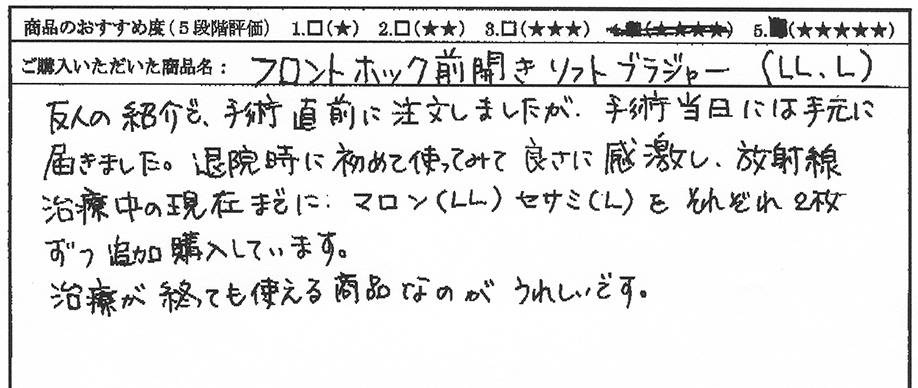 商品のおすすめ度(5段階評価) 1.□(★) 2.□(★★) 3.□(★★★) 4.■(★★★★) 5.■(★★★★★)
ご購入いただいた商品名: フロントホック前開きソフトブラジャー (LL、L)
友人の紹介で、手術直前に注文しましたが、手術当日には手元に
届きました。退院時に初めて使ってみて良さに感激し、放射線
治療中の現在までに、マロン(LL)セサミ(L)をそれぞれ2枚
ずつ追加購入しています。
治療が終っても使える商品なのがうれしいです。